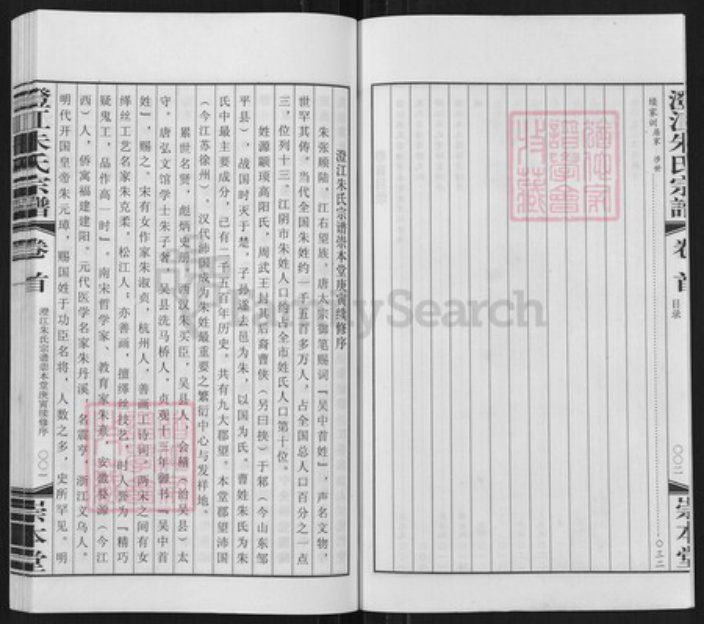 澄江朱氏宗譜 卷首 目录 〇〇二 崇本堂
续家训居家 涉世 〇三二
澄江朱氏宗谱崇本堂庚寅续修序
朱张顾陆，江右望族，唐太宗御笔赐词『吴中首姓』，声名文物，
世罕其俦。当代全国朱姓约一千五百多万人，占全国总人口百分之一点
三，位列十三。江阴市朱姓人口约占全市姓氏人口第十位。
姓源颛顼高阳氏。周武王封其后裔曹侠（另曰挟）于邾（今山东邹
平县），战国时灭于楚，子孙遂去邑为朱，以国为氏。曹姓朱氏为朱
氏中最主要成分，已有二千五百年历史。共有九大郡望。本堂郡望沛国
（今江苏徐州），汉代沛国成为朱姓最重要之繁衍中心与发祥地。
累世名贤，彪炳史册。西汉朱买臣，吴县人，会稽（治吴县）太
守。唐弘文馆学士朱子奢，吴县洗马桥人，贞观十三年御书『吴中首
姓』，赐之。宋有女作家朱淑贞，杭州人，善画工诗词。两宋之间有女
缂丝工艺名家朱克柔，松江人；亦善画，擅缂丝技艺，时人誉为『精巧
疑鬼工，品作高一时』。南宋哲学家、教育家朱熹，安徽婺源（今江
西）人，侨寓福建建阳。元代医学名家朱丹溪，名震亨，浙江义乌人。
明代开国皇帝朱元璋，赐国姓于功臣名将，人数之多，史所罕见。明
澄江朱氏宗譜 卷首 澄江朱氏宗谱崇本堂庚寅续修序 〇〇一 崇本堂
FamilySearch